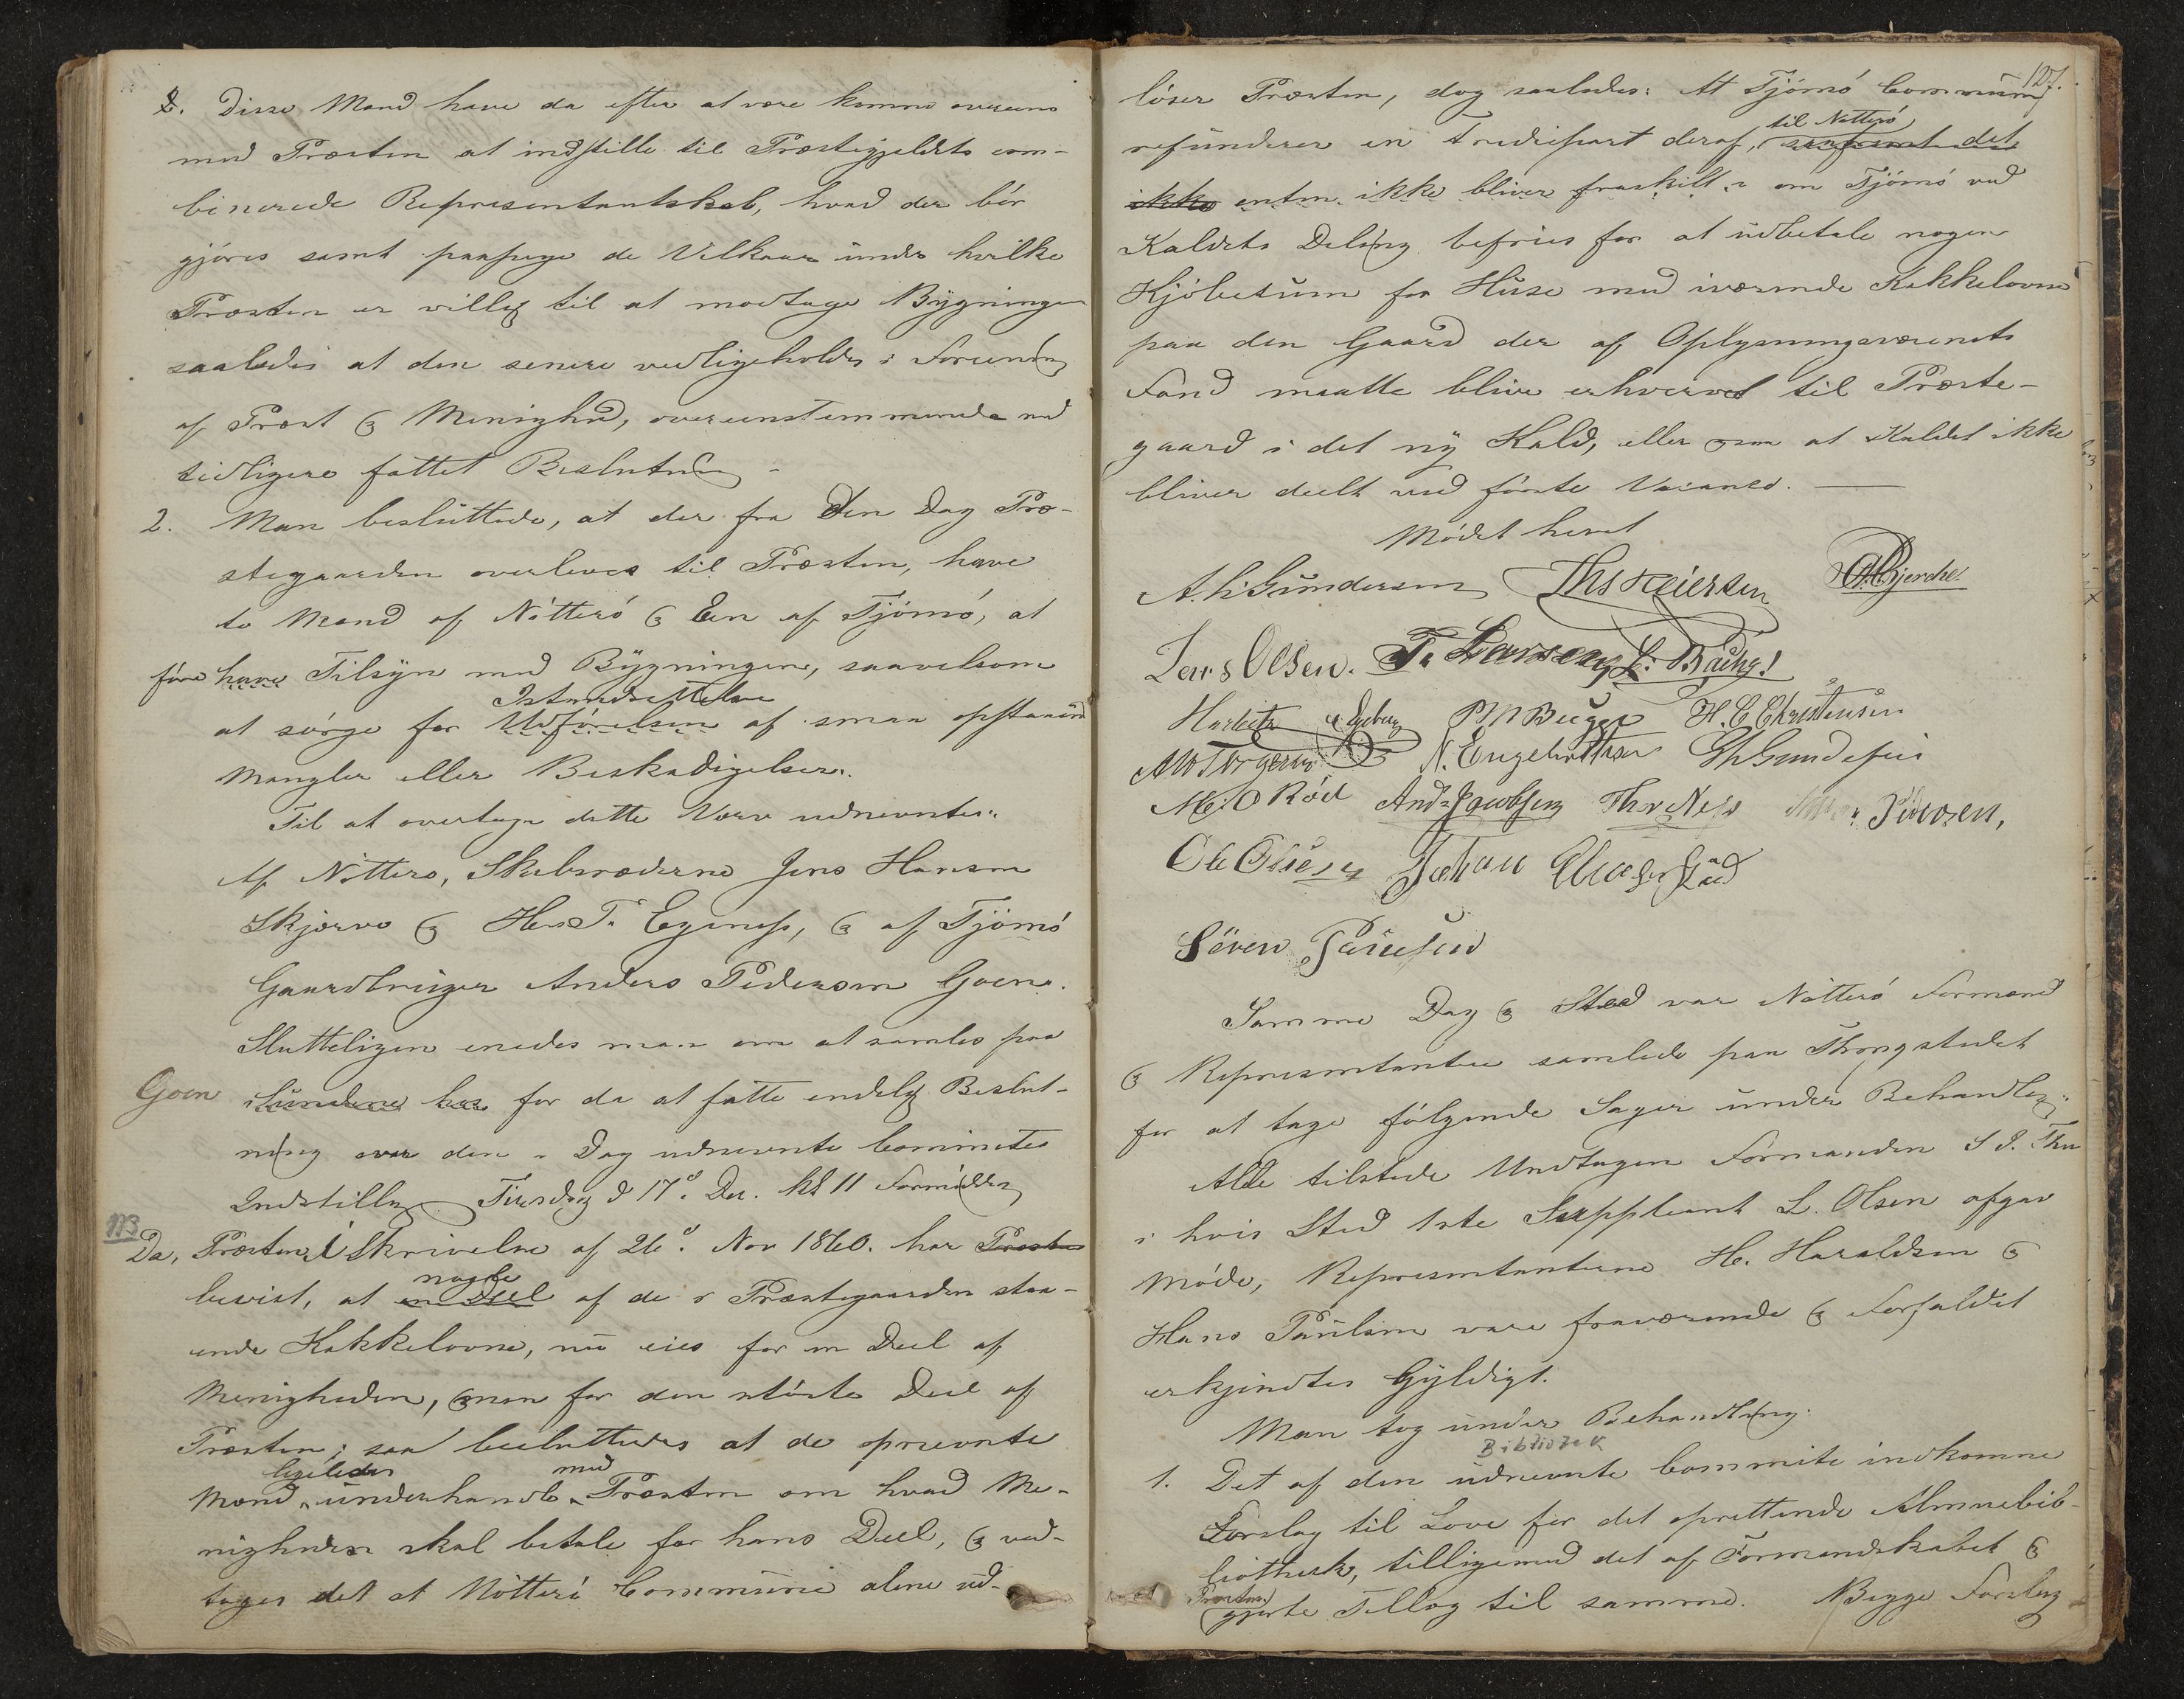 2. Disse Mænd have da efter at være komne overeens
med Præsten at indstille til Præstegjeldets com-
binerede Repræsentantskab, hvad der bör
gjöres samt paapege de Vilkaar under hvilke
Præsten er villig til at modtage Bygningen
saaledes at den senere vedligeholdes i Forening
af Præst & Menighed, overeenstemmende med
tidligere fattet Beslutning -
2. Man besluttede, at der fra den Dag Præ-
stegaarden overleves til Præsten, have
to Mænd af Nötterö & Een af Tjömö, at
före have Tilsyn med Bygningerne, saavelsom
Istandsættelse
at sörge for Udförelsen af smaa opstaaende
Mangler eller Beskadigelser.
Til at overtage dette Værv udnevntes:
Af Nötterö, Skolerne Jens Hansen
Skjerve & Hans T. Egenæs, & af Tjömö
Gaardbruger Anders Pedersen Goen.
Sluttelig enedes man om at samles paa
Goen Sundene her for da at fatte endelig Beslut-
ning over den i Dag udnevnte Committes
Indstilling Tirsdag d 17de Dec. Kl 11 Formiddag
113
Da, Præsten i Skrivelse af 26de Nov 1860. har Præsten
nogle
beviist, at en Deel af de i Præstegaarden staa-
ende Kakkelovne, nu eies for en Deel af
Menigheden, men for den störste Deel af
Præsten; saa besluttedes at de opnevnte
ligeledes med
Mænd underhandle Præsten om hvad Me-
nigheden skal betale for hans Deel, & ved-
toges det at Nötterö Commune alene ud-
127.
löser Præsten, dog saaledes: At Tjömö Commune
til Nötterö
refunderer en Trediepart deraf, saafremt det
ikke enten ikke bliver fraskilt i om Tjömö ved
Kaldets Deling befries for at udbetale nogen
Kjöbesum for Huse med iværende Kakkelovne
paa den Gaard der af Oplysningsvæsenets
Fond maatte blive erhvervet til Præste-
gaard i det ny Kald, eller om at Kaldet ikke
bliver deelt ved förste Vacance.
Mödet hævet
A. h. Gundersen Ths Reiersen O. Bjerche
Lars Olsen. T. Larsen L: Bache!
P N Beiger H. C Christensen
A W Torgersen N. Engebretsen
M: O Röd Ands Jacobsen Thor Næs Pedersen,
Ole Olsen Johan
Sören Paulsen
Samme Dag & Sted var Nötterö Formænd
& Repræsentanter samlede paa Thingstedet
for at tage fölgende Sager under Behandling:
Alle tilstede Undtagen Formanden S J. Thu
i hvis Sted 1ste Suppleant L. Olsen afgav
Möde, Repræsentanterne H. Haraldsen &
Hans Paulsen vare fraværende & Forfaldet
erkjendtes Gyldigt.
Man tog under Behandling:
Bibliotek
1. Det af den udnevnte Committe indkomne
Forslag til Love for det oprettende Almuebib-
liothek, tilligemed det af Formandskabet &
Præsten
gjorte Tillæg til samme. Begge Forslag